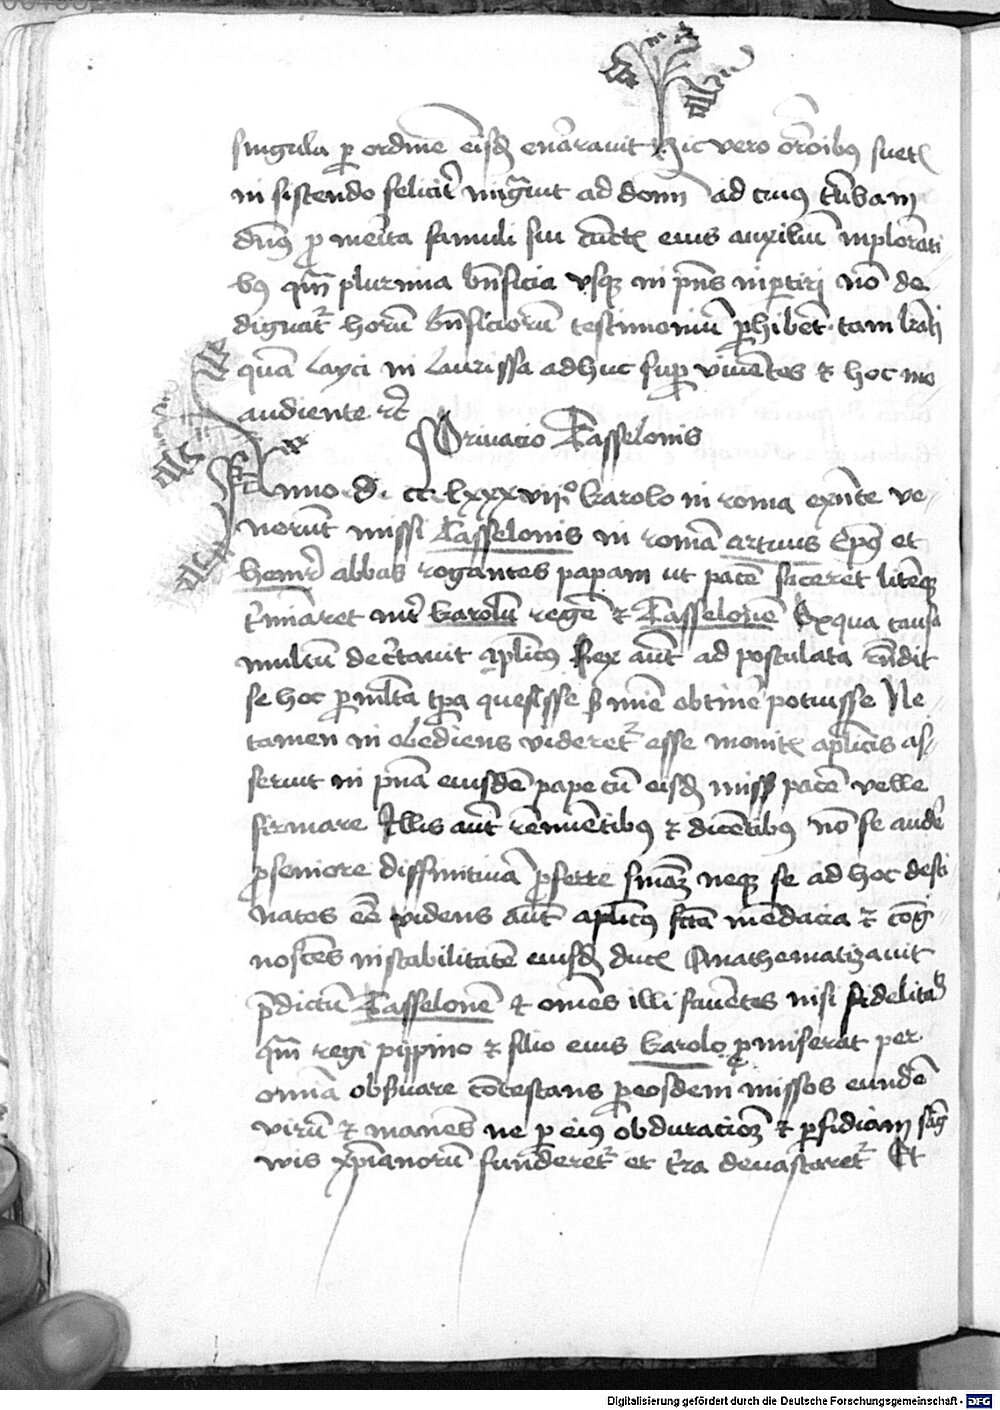 singula p ordinē eisd enarravit Hic vero orōibus suetis
in sistendo felicit migvit ad dom ad cuius tumbam
dn̄s p merita famuli sui cūctis eius auxiliū implorāti
bus qm̄ plurima bn̄ficia usque in pn̄s inpertiri nō de
dignat horū bn̄ficiorū testimoniū phibēt tam
quā layci in Laurissa adhuc sup viventes et hoc me
audiente rc̄
Privacio Tasselonis
Anno d. cclxxxvii° karolo in roma exn̄te ve
nerūt missi Tasselonis in romā arnus Ep̄s et
henr abbas rogantes papam ut pacē faceret litēque
tminaret int karolū regē et Tasselonē Ex qua causa
multū dectavit aplicus Rex aūt ad postulata rn̄dit
se hoc p mlta tpa quesisse s mie obtinē potuisse Ne
tamen in obediens videret esse monitis aplicis as
seruit in pn̄a eiusdē pape cū eisd missis pacē velle
firmare Illis aūt rēnuētibus et dicētibus nō se audē
pseniore diffinitivā pferre neque se ad hoc desti
natos ēe videns aūt aplicus mēdacia et cog
noscēs instabilitatē eiusd ducis Anathematizavit
pdictū Tasselonē et omēs illi favētes nisi fidelitatē
qm̄ regi pippino et filio eius karolo pmiserat per
omnia obsvare cōtestans p eosdem missos eundē
virū et manēs ne p eius obduracionē et pfidiam sāg
wis xp̄ianorū funderet et tra devastaret Et
Digitalisierung gefördert durch die Deutsche Forschungsgemeinschaft - DFG